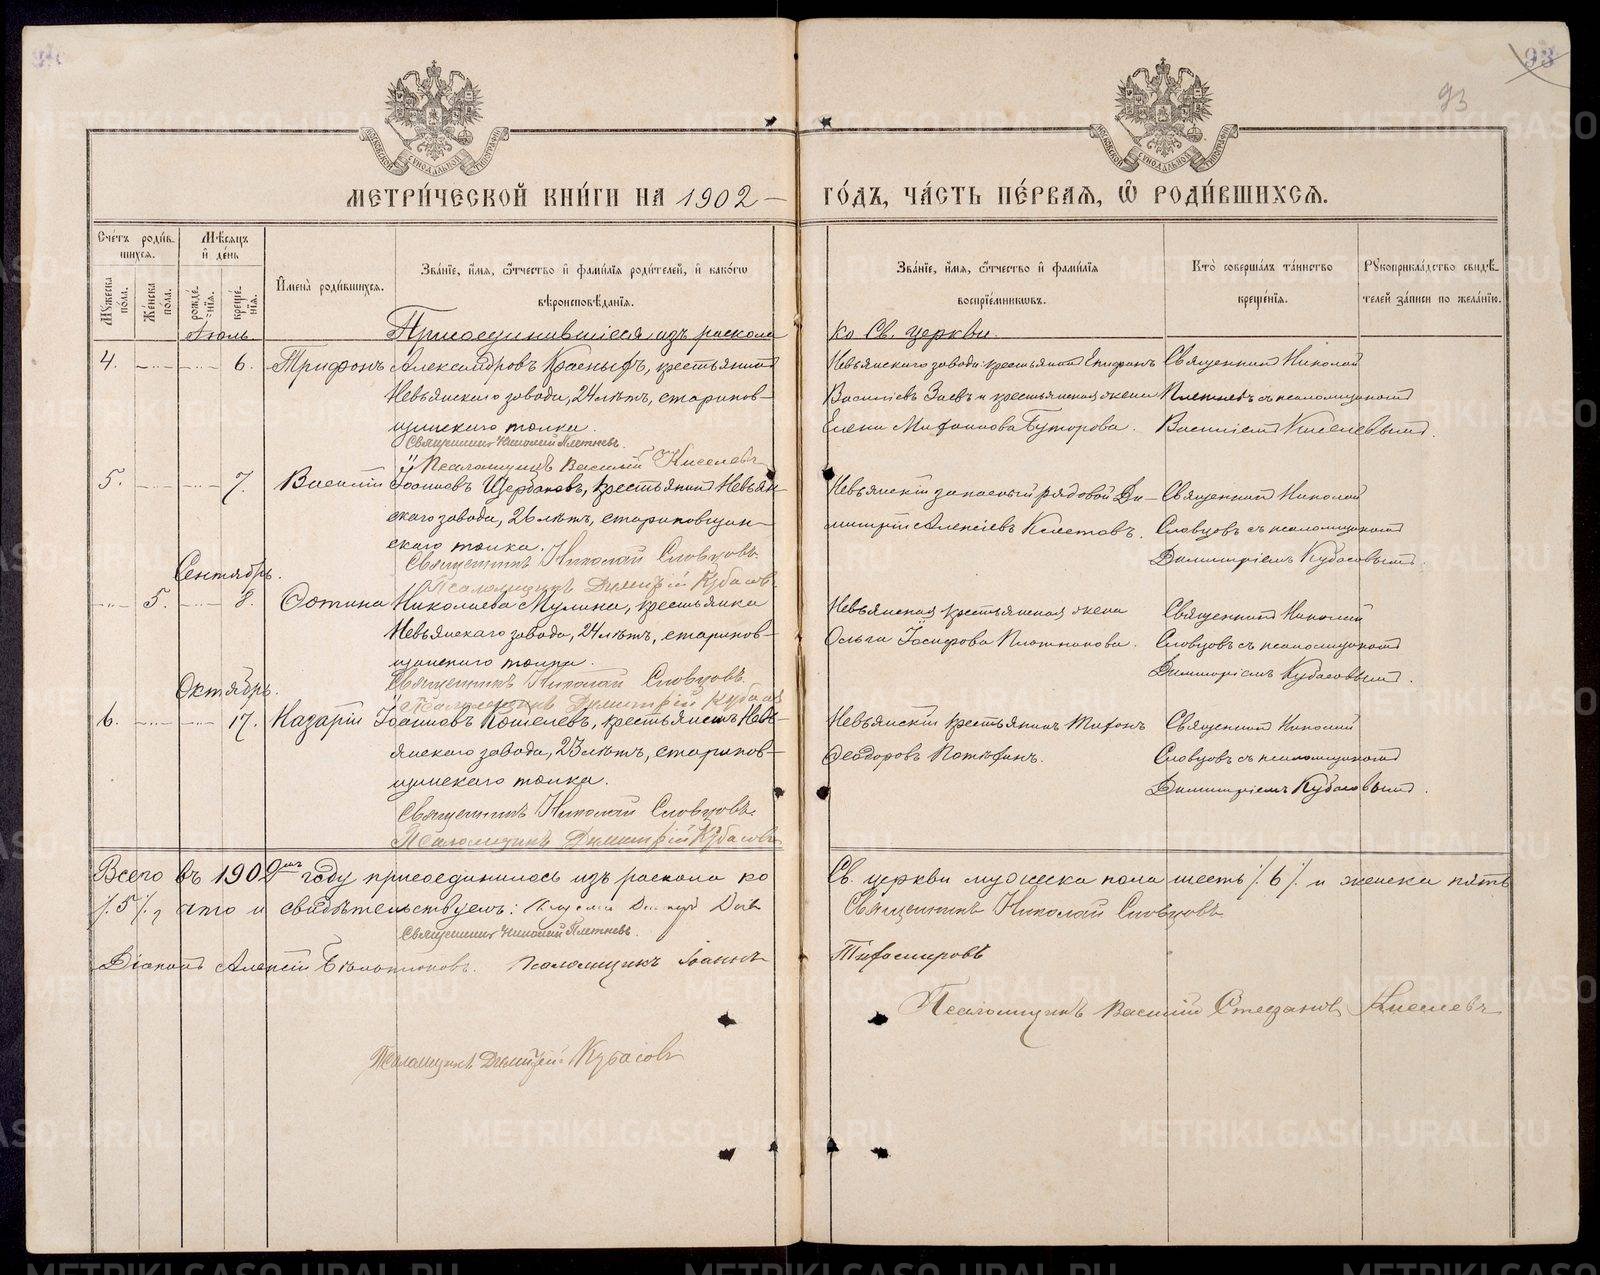 93
93
МЕТРИ́ЧЕСКОЙ КНИ́ГИ НА 1902 ГО́ДЪ, ЧА́СТЬ ПЕ́РВАЯ, Ѽ РОДИ́ВШИХСЯ.
Сче́тъ роди́в-
шихся.
Мꙋжеска по́ла.
Же́нска по́ла.
Мѣ́сяцъ
и҆ де́нь
рожде́-
нїя.
креще́-
нїя.
И҆мена̀ роди́вшихся.
Зва́нїе, и҆́мя, ѻ҆́тчество и҆ фами́лїя роди́телей, и҆ како́гѡ
вѣроисповѣ́данїя.
Зва́нїе, и҆́мя, ѻ҆́тчество и҆ фами́лїя
воспрїе́мниковъ.
Кто̀ соверша́лъ та́инство
креще́нїя.
Рꙋкоприкла́дство свидѣ́-
телей за́писи по жела́нїю.
Іюль. Присоединившіеся изъ раскола ко Св. церкви.
4. 6. Трифонъ Александровъ Красныхъ, крестьянинъ
Невьянскаго завода, 24 лѣтъ, стариков-
щинскаго толка.
Священникъ Николай Плетневъ
Псаломщикъ Василій Киселевъ
Невьянскаго завода крестьянинъ Епифанъ
Василіевъ Заевъ и крестьянская жена
Елена Буторова.
Священникъ Николай
Плетневъ съ псаломщикомъ
Василіемъ Киселевымъ.
5. 7. Василій Іоанновъ Щербаковъ, крестьянинъ Невьян-
скаго завода, 26 лѣтъ, стариковщин-
скаго толка.
Священникъ Николай Словцовъ
Псаломщикъ Димитрій Кубасовъ
Невьянскій запасный рядовой Ди-
митрій Алексіевъ
Священникъ Николай
Словцовъ съ псаломщикомъ
Димитріемъ Кубасовымъ.
Сентябрь.
5. 8. Фотина Николаева Мулина, крестьянка
Невьянскаго завода, 24 лѣтъ, стариков-
щинскаго толка.
Священникъ Николай Словцовъ
Псаломщикъ Димитрій Кубасовъ
Невьянская крестьянская жена
Ольга Іосифова Плотникова.
Священникъ Николай
Словцовъ съ псаломщикомъ
Димитріемъ Кубасовымъ.
Октябрь.
6. 17. Назарій Іоанновъ Кошелевъ, крестьянинъ Невь-
янскаго завода, 23 лѣтъ, стариков-
щинскаго толка.
Священникъ Николай Словцовъ
Псаломщикъ Димитрій Кубасовъ
Невьянскій крестьянинъ
Ѳеодоровъ
Священникъ Николай
Словцовъ съ псаломщикомъ
Димитріемъ Кубасовымъ.
Всего въ 1902мъ году присоединилось изъ раскола ко Св. церкви мужска пола шесть /.6/. и женска пять
/.5/., что и свидѣтельствуемъ:
Священникъ Николай Словцовъ
Священникъ Николай Плетневъ.
Діаконъ Алексій Псаломщикъ Іоаннъ Тихомировъ
Псаломщикъ Василій Стефановъ Киселевъ
Псаломщикъ Димитрій Кубасовъ
METRIKI.GASO-URAL.RU